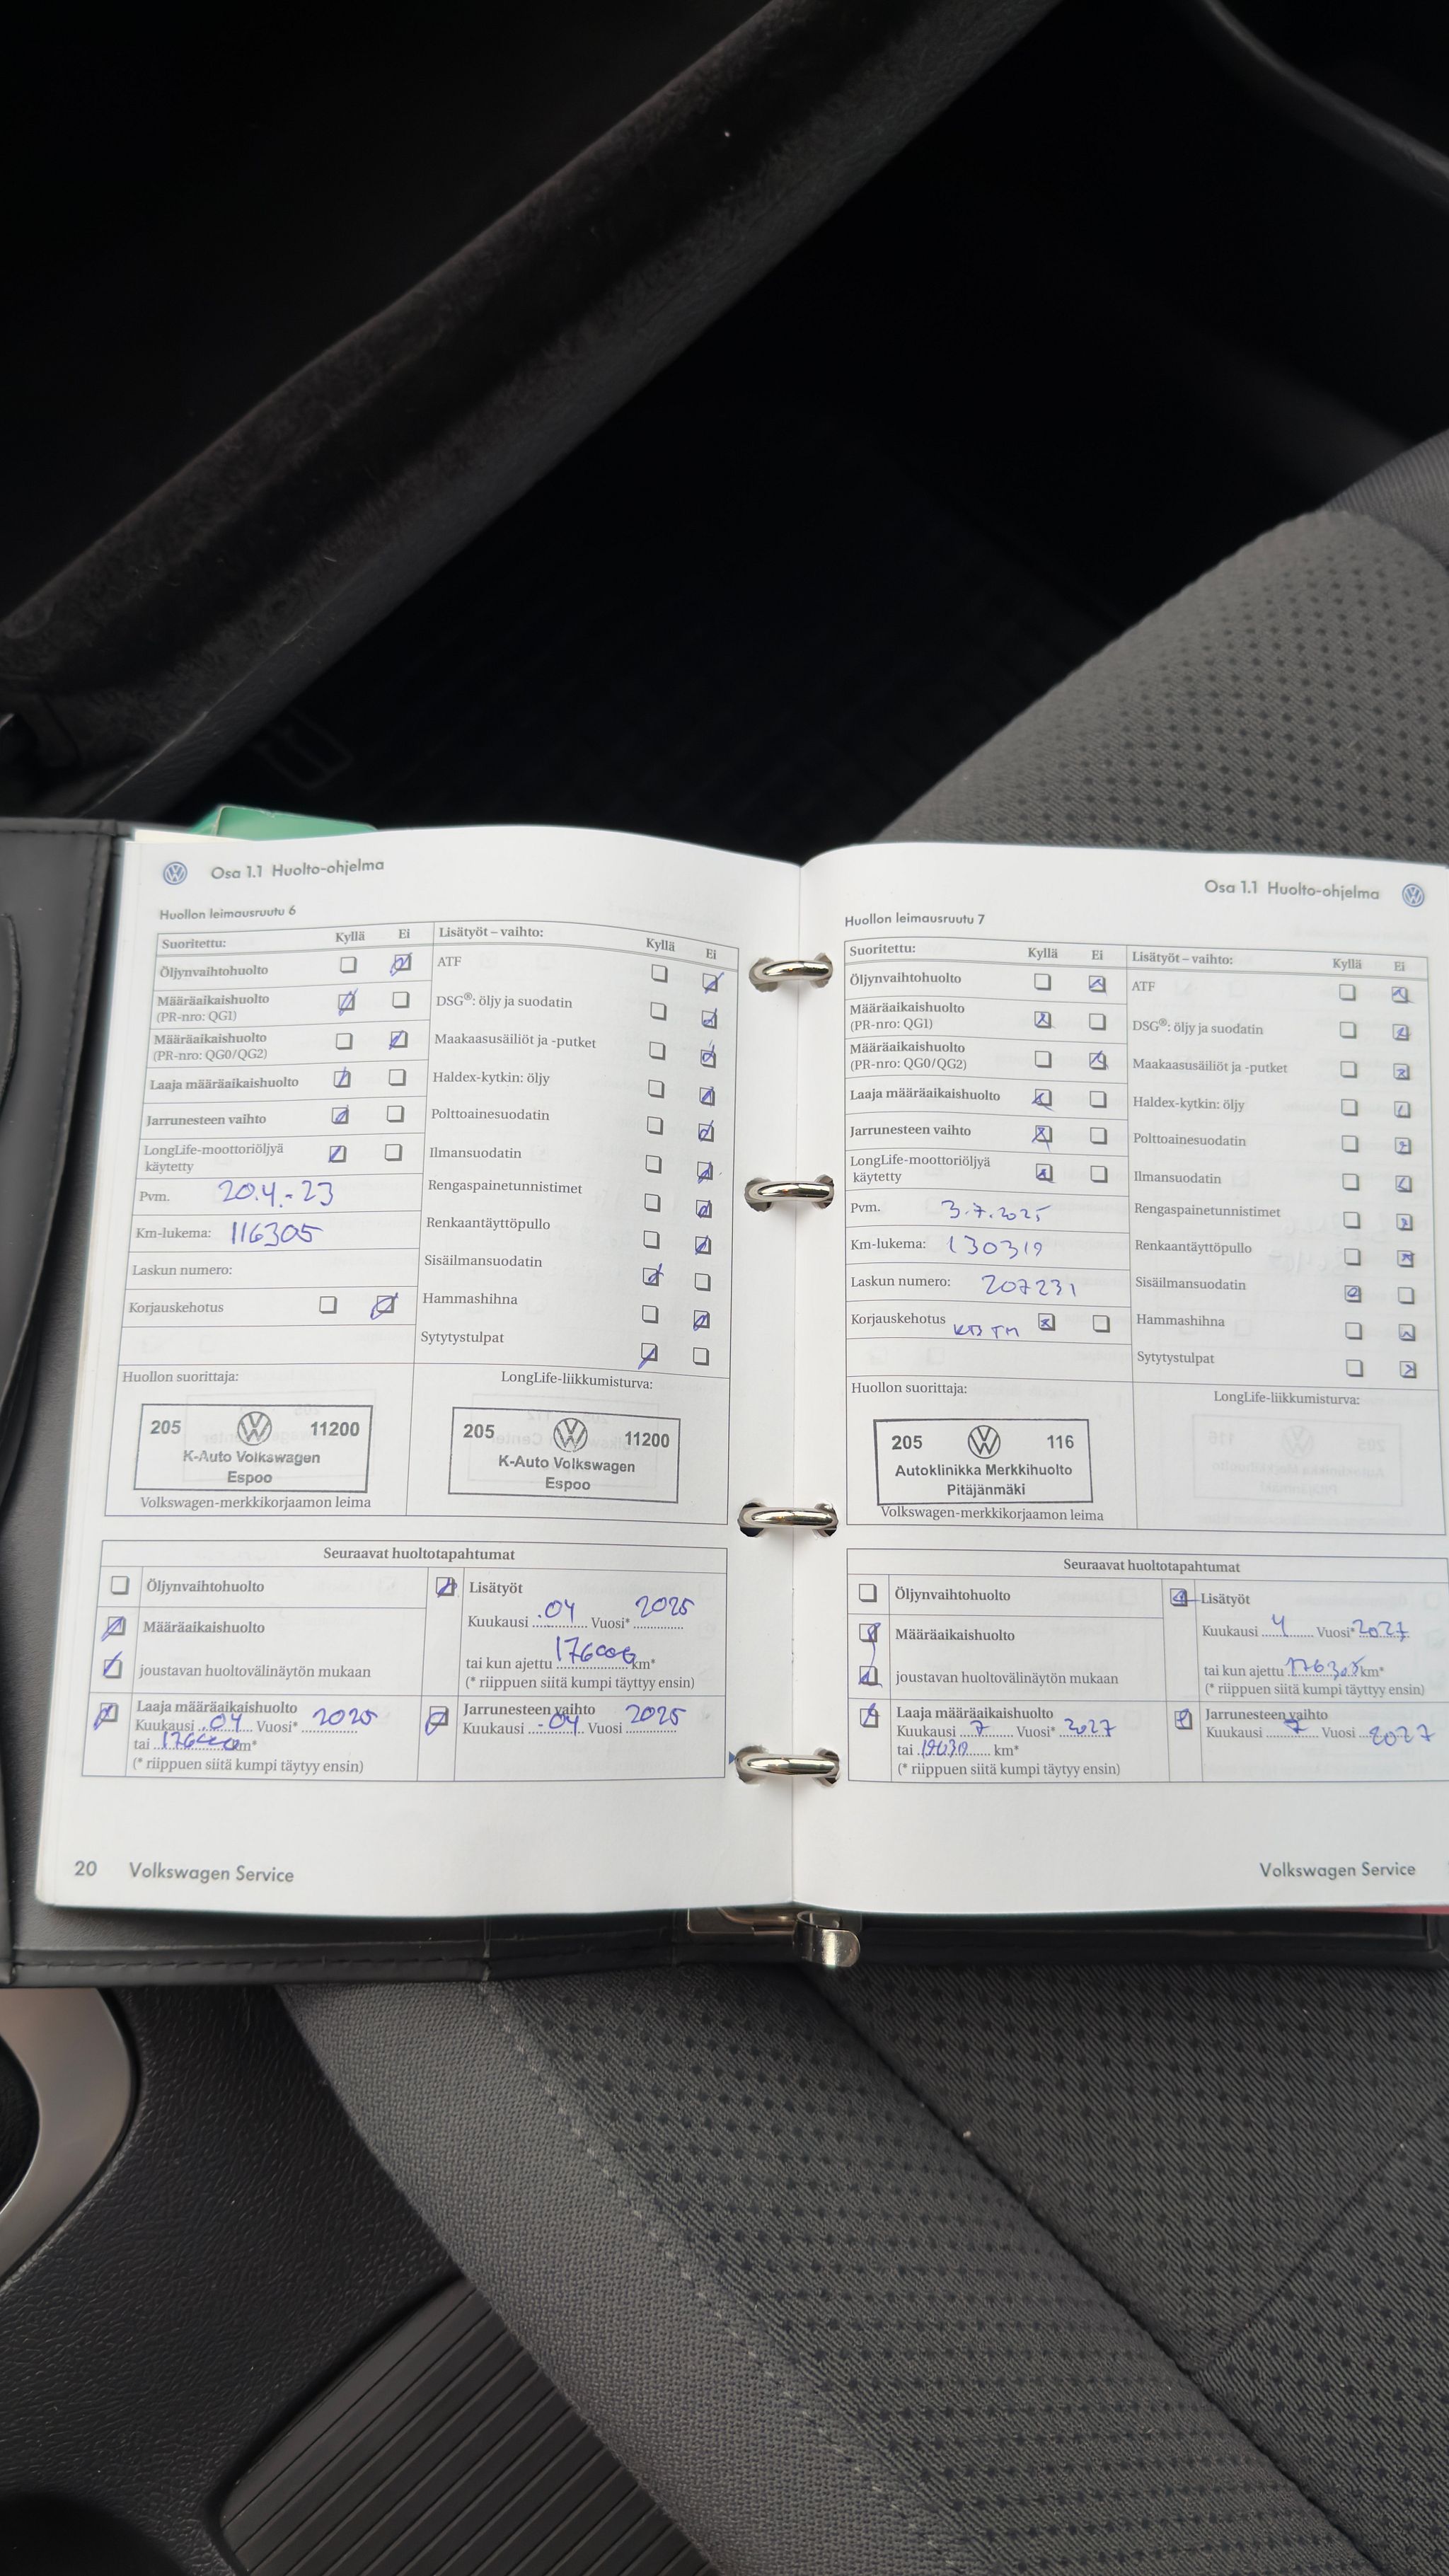 Osa 1.1 Huolto-ohjelma
Huollon leimausruutu 6
Suoritettu: Kyllä Ei
Öljynvaihtohuolto
Määräaikaishuolto
(PR-nro: QG1)
Määräaikaishuolto
(PR-nro: QG0/QG2)
Laaja määräaikaishuolto
Jarrunesteen vaihto
LongLife-moottoriöljyä
käytetty
Pvm. 20.4.-23
Km-lukema: 116305
Laskun numero:
Korjauskehotus
Lisätyöt – vaihto: Kyllä Ei
ATF
DSG®: öljy ja suodatin
Maakaasusäiliöt ja -putket
Haldex-kytkin: öljy
Polttoainesuodatin
Ilmansuodatin
Rengaspainetunnistimet
Renkaantäyttöpullo
Sisäilmansuodatin
Hammashihna
Sytytystulpat
Huollon suorittaja:
205 11200
K-Auto Volkswagen
Espoo
Volkswagen-merkkikorjaamon leima
LongLife-liikkumisturva:
205 11200
K-Auto Volkswagen
Espoo
Seuraavat huoltotapahtumat
Öljynvaihtohuolto
Määräaikaishuolto
joustavan huoltovälinäytön mukaan
Lisätyöt
Kuukausi 04 Vuosi* 2025
tai kun ajettu 176000 km*
(* riippuen siitä kumpi täyttyy ensin)
Laaja määräaikaishuolto
Kuukausi 04 Vuosi* 2025
tai km*
(* riippuen siitä kumpi täytyy ensin)
Jarrunesteen vaihto
Kuukausi 04 Vuosi 2025
20 Volkswagen Service
Osa 1.1 Huolto-ohjelma
Huollon leimausruutu 7
Suoritettu: Kyllä Ei
Öljynvaihtohuolto
Määräaikaishuolto
(PR-nro: QG1)
Määräaikaishuolto
(PR-nro: QG0/QG2)
Laaja määräaikaishuolto
Jarrunesteen vaihto
LongLife-moottoriöljyä
käytetty
Pvm. 3.7.2025
Km-lukema: 130319
Laskun numero: 207231
Korjauskehotus
Lisätyöt – vaihto: Kyllä Ei
ATF
DSG®: öljy ja suodatin
Maakaasusäiliöt ja -putket
Haldex-kytkin: öljy
Polttoainesuodatin
Ilmansuodatin
Rengaspainetunnistimet
Renkaantäyttöpullo
Sisäilmansuodatin
Hammashihna
Sytytystulpat
Huollon suorittaja:
205 116
Autoklinikka Merkkihuolto
Pitäjänmäki
Volkswagen-merkkikorjaamon leima
LongLife-liikkumisturva:
Seuraavat huoltotapahtumat
Öljynvaihtohuolto
Määräaikaishuolto
joustavan huoltovälinäytön mukaan
Lisätyöt
Kuukausi 4 Vuosi* 2027
tai kun ajettu km*
(* riippuen siitä kumpi täyttyy ensin)
Laaja määräaikaishuolto
Kuukausi 7 Vuosi* 2027
tai km*
(* riippuen siitä kumpi täytyy ensin)
Jarrunesteen vaihto
Kuukausi 7 Vuosi 2027
Volkswagen Service